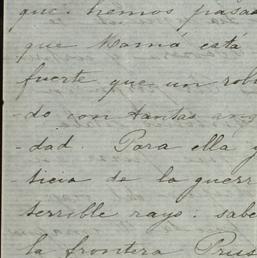 que hemos pasad
que Mamá está
fuerte que un robl
do con tantas ang
-dad. Para ella y
ticia de la guerr
terrible rayo: sabe
la frontera Prus